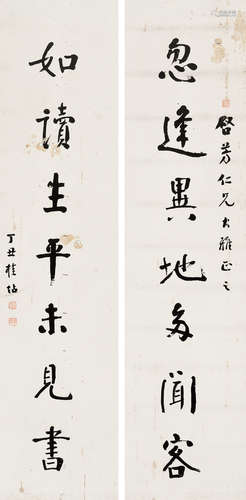 啓芳仁兄大雅正之
忽逢異地多聞客
如讀生平未見書
丁丑桂